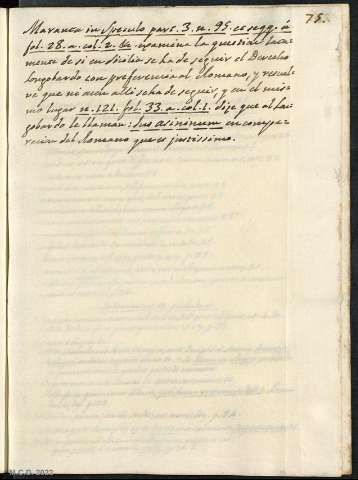 75.
Maranta in Speculo part. 3. n. 95. et seqq. á
fol. 28. a. col. 2. examina la question larga-
mente de si en Italia se ha de seguir el Derecho
longobardo con preferencia al Romano, y resuel-
ve que ni aun alli se ha de seguir, y en el mis-
mo lugar n. 121. fol. 33. a. col. 1. dije que al lon-
gobardo le llaman: Jus asininum en compa-
racion del Romano que es justissimo.
M.C.D. 2022